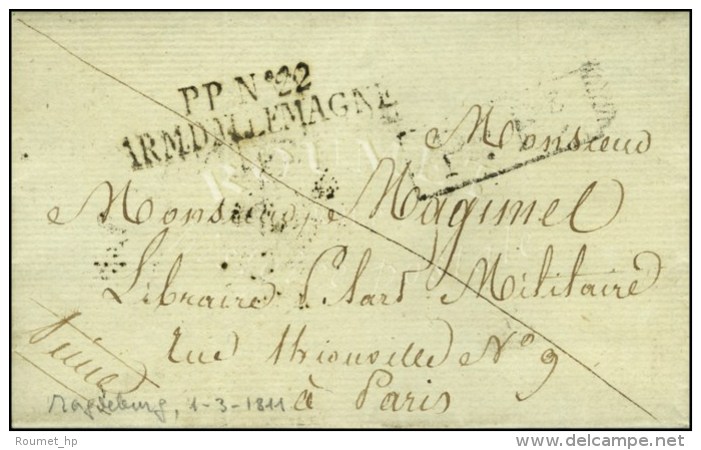 P.P. N° 22
ARM. D'ALLEMAGNE
Monsieur
Monsieur Magimel
Libraire P. l'art Militaire
Rue thionville N° 9
à Paris
Magdeburg, 1-3-1811
© Roumet_hp
www.delcampe.net